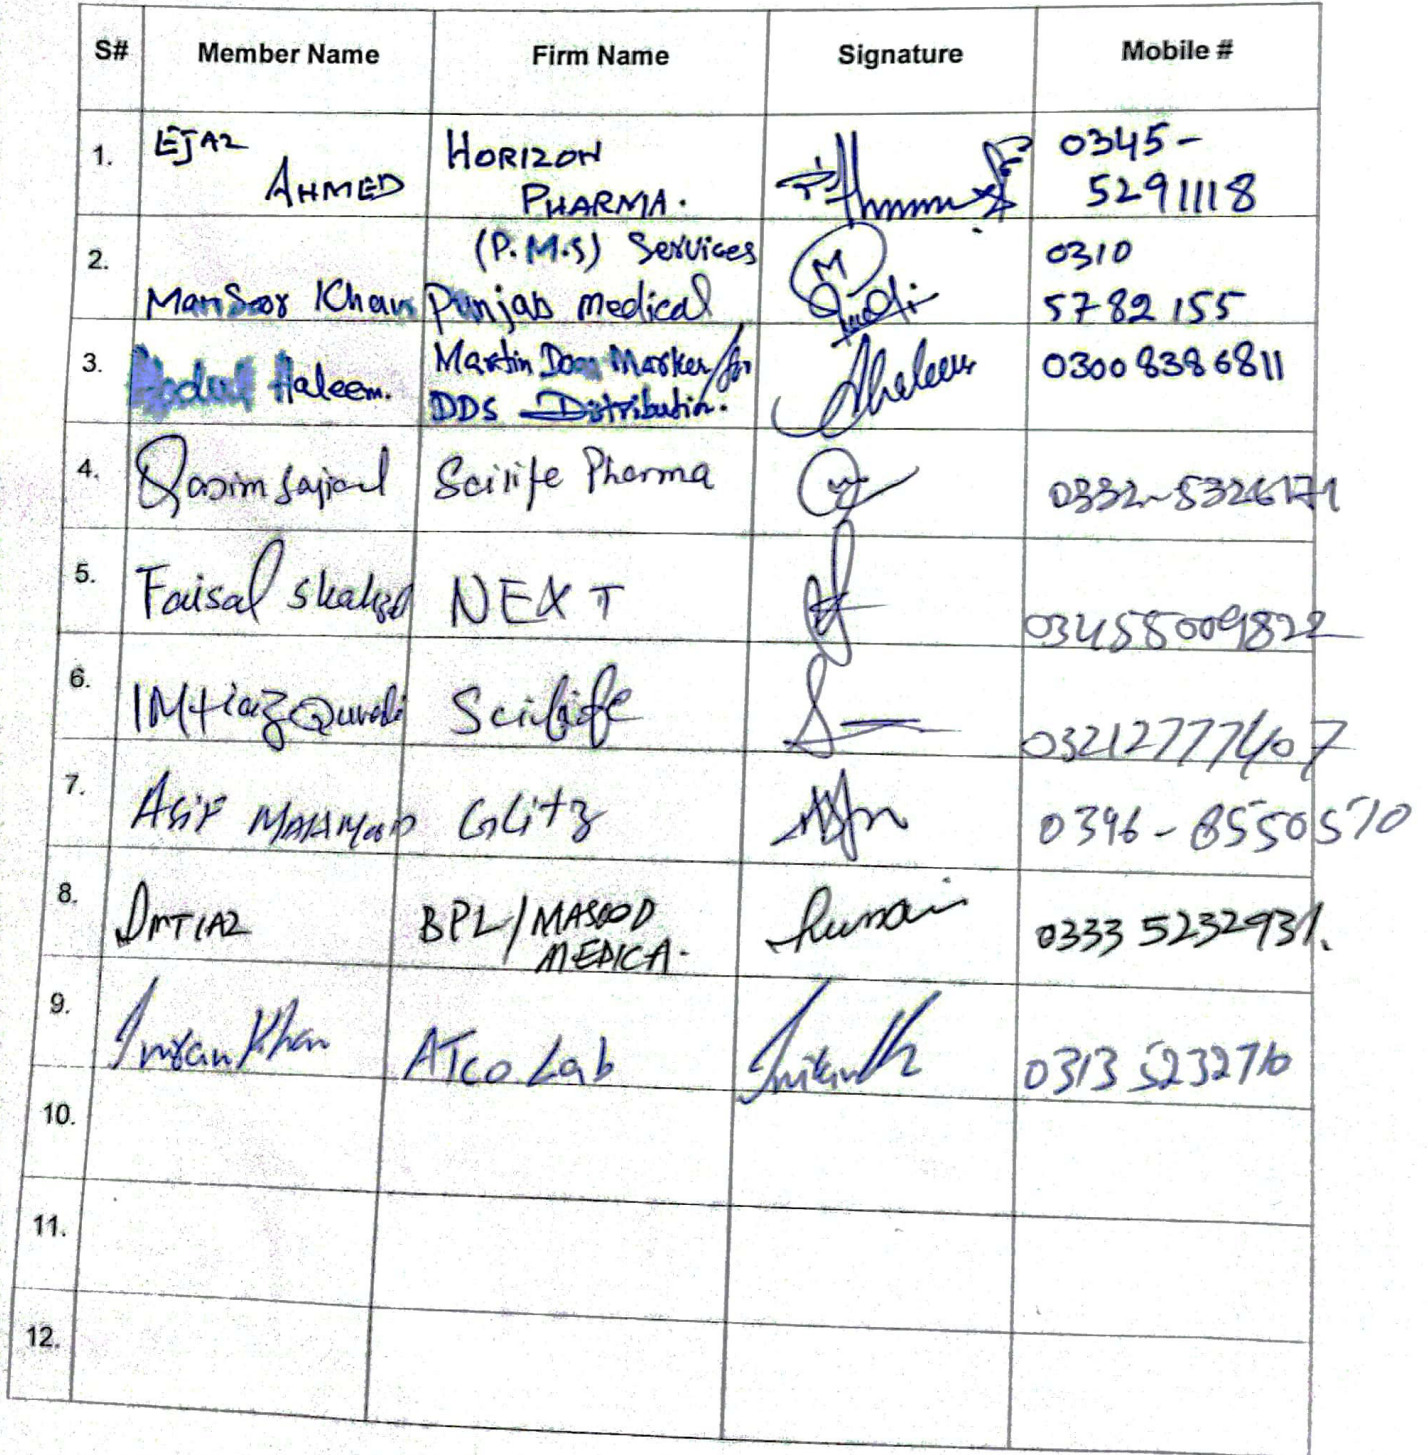 S# Member Name Firm Name Signature Mobile #
1. EJAZ AHMED HORIZON PHARMA. 0345-5291118
2. Mansoor Khan (P.M.S) Services Punjab medical 0310 5782155
3. Abdul Haleem. Martin Dow Marker/for DDS Distribution. Ahaleem 03008386811
4. Qasim Sajjad Scilife Pharma
5. Faisal Shahzad NEXT 03455009822
6. IMtiaz Qureshi Scilife
7. Asif MAHMOOD Glitz
8. IMTIAZ BPL/MASOOD MEDICA. 0333 5232931.
9. Imran Khan ATco Lab 0313 5232710
10.
11.
12.